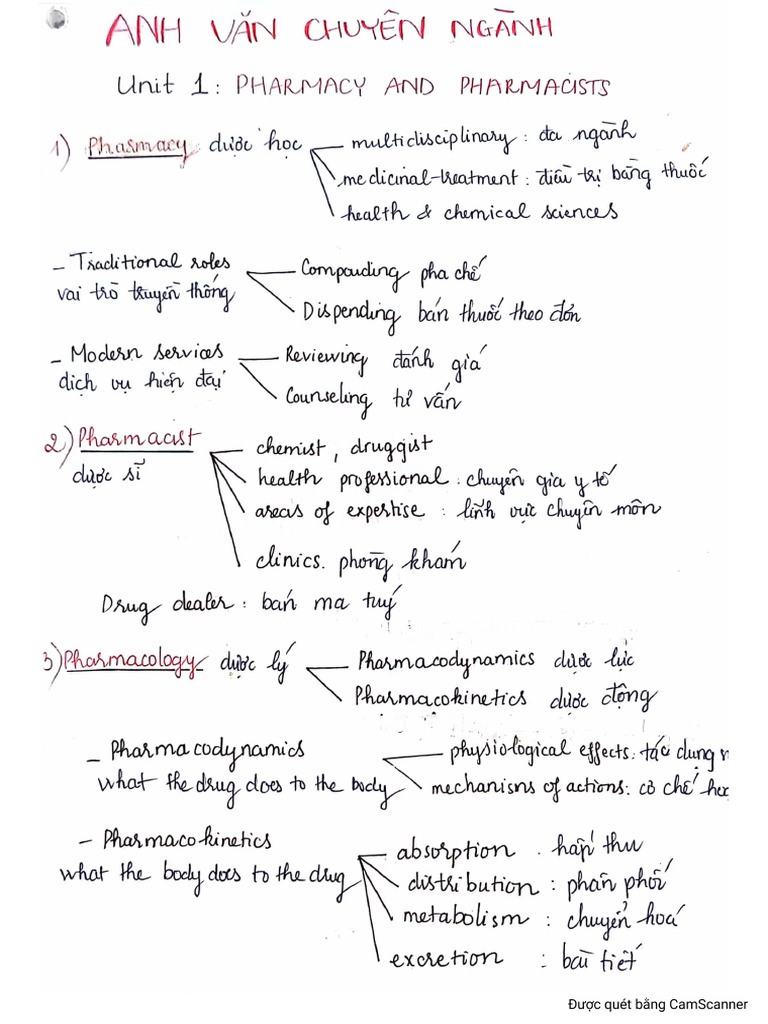 ANH VĂN CHUYÊN NGÀNH
Unit 1: PHARMACY AND PHARMACISTS
1) Pharmacy: dược học
multidisciplinary: đa ngành
medicinal-treatment: điều trị bằng thuốc
health & chemical sciences
- Traditional roles
vai trò truyền thống
Compouding pha chế
Dispending bán thuốc theo đơn
- Modern services
dịch vụ hiện đại
Reviewing đánh giá
Counseling tư vấn
2) Pharmacist
dược sĩ
chemist, druggist
health professional: chuyên gia y tế
areas of expertise: lĩnh vực chuyên môn
clinics. phòng khám
Drug dealer: bán ma tuý
3) Pharmacology dược lý
Pharmacodynamics dược lực
Pharmacokinetics dược động
- Pharmacodynamics
what the drug does to the body
physiological effects: tác dụng
mechanisms of actions: cơ chế
- Pharmacokinetics
what the body does to the drug
absorption. hấp thu
distribution: phân phối
metabolism: chuyển hoá
excretion: bài tiết
Được quét bằng CamScanner